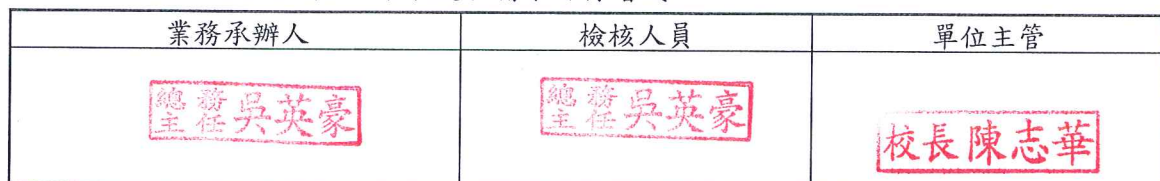 業務承辦人 檢核人員 單位主管
總務主任吳英豪 總務主任吳英豪 校長陳志華